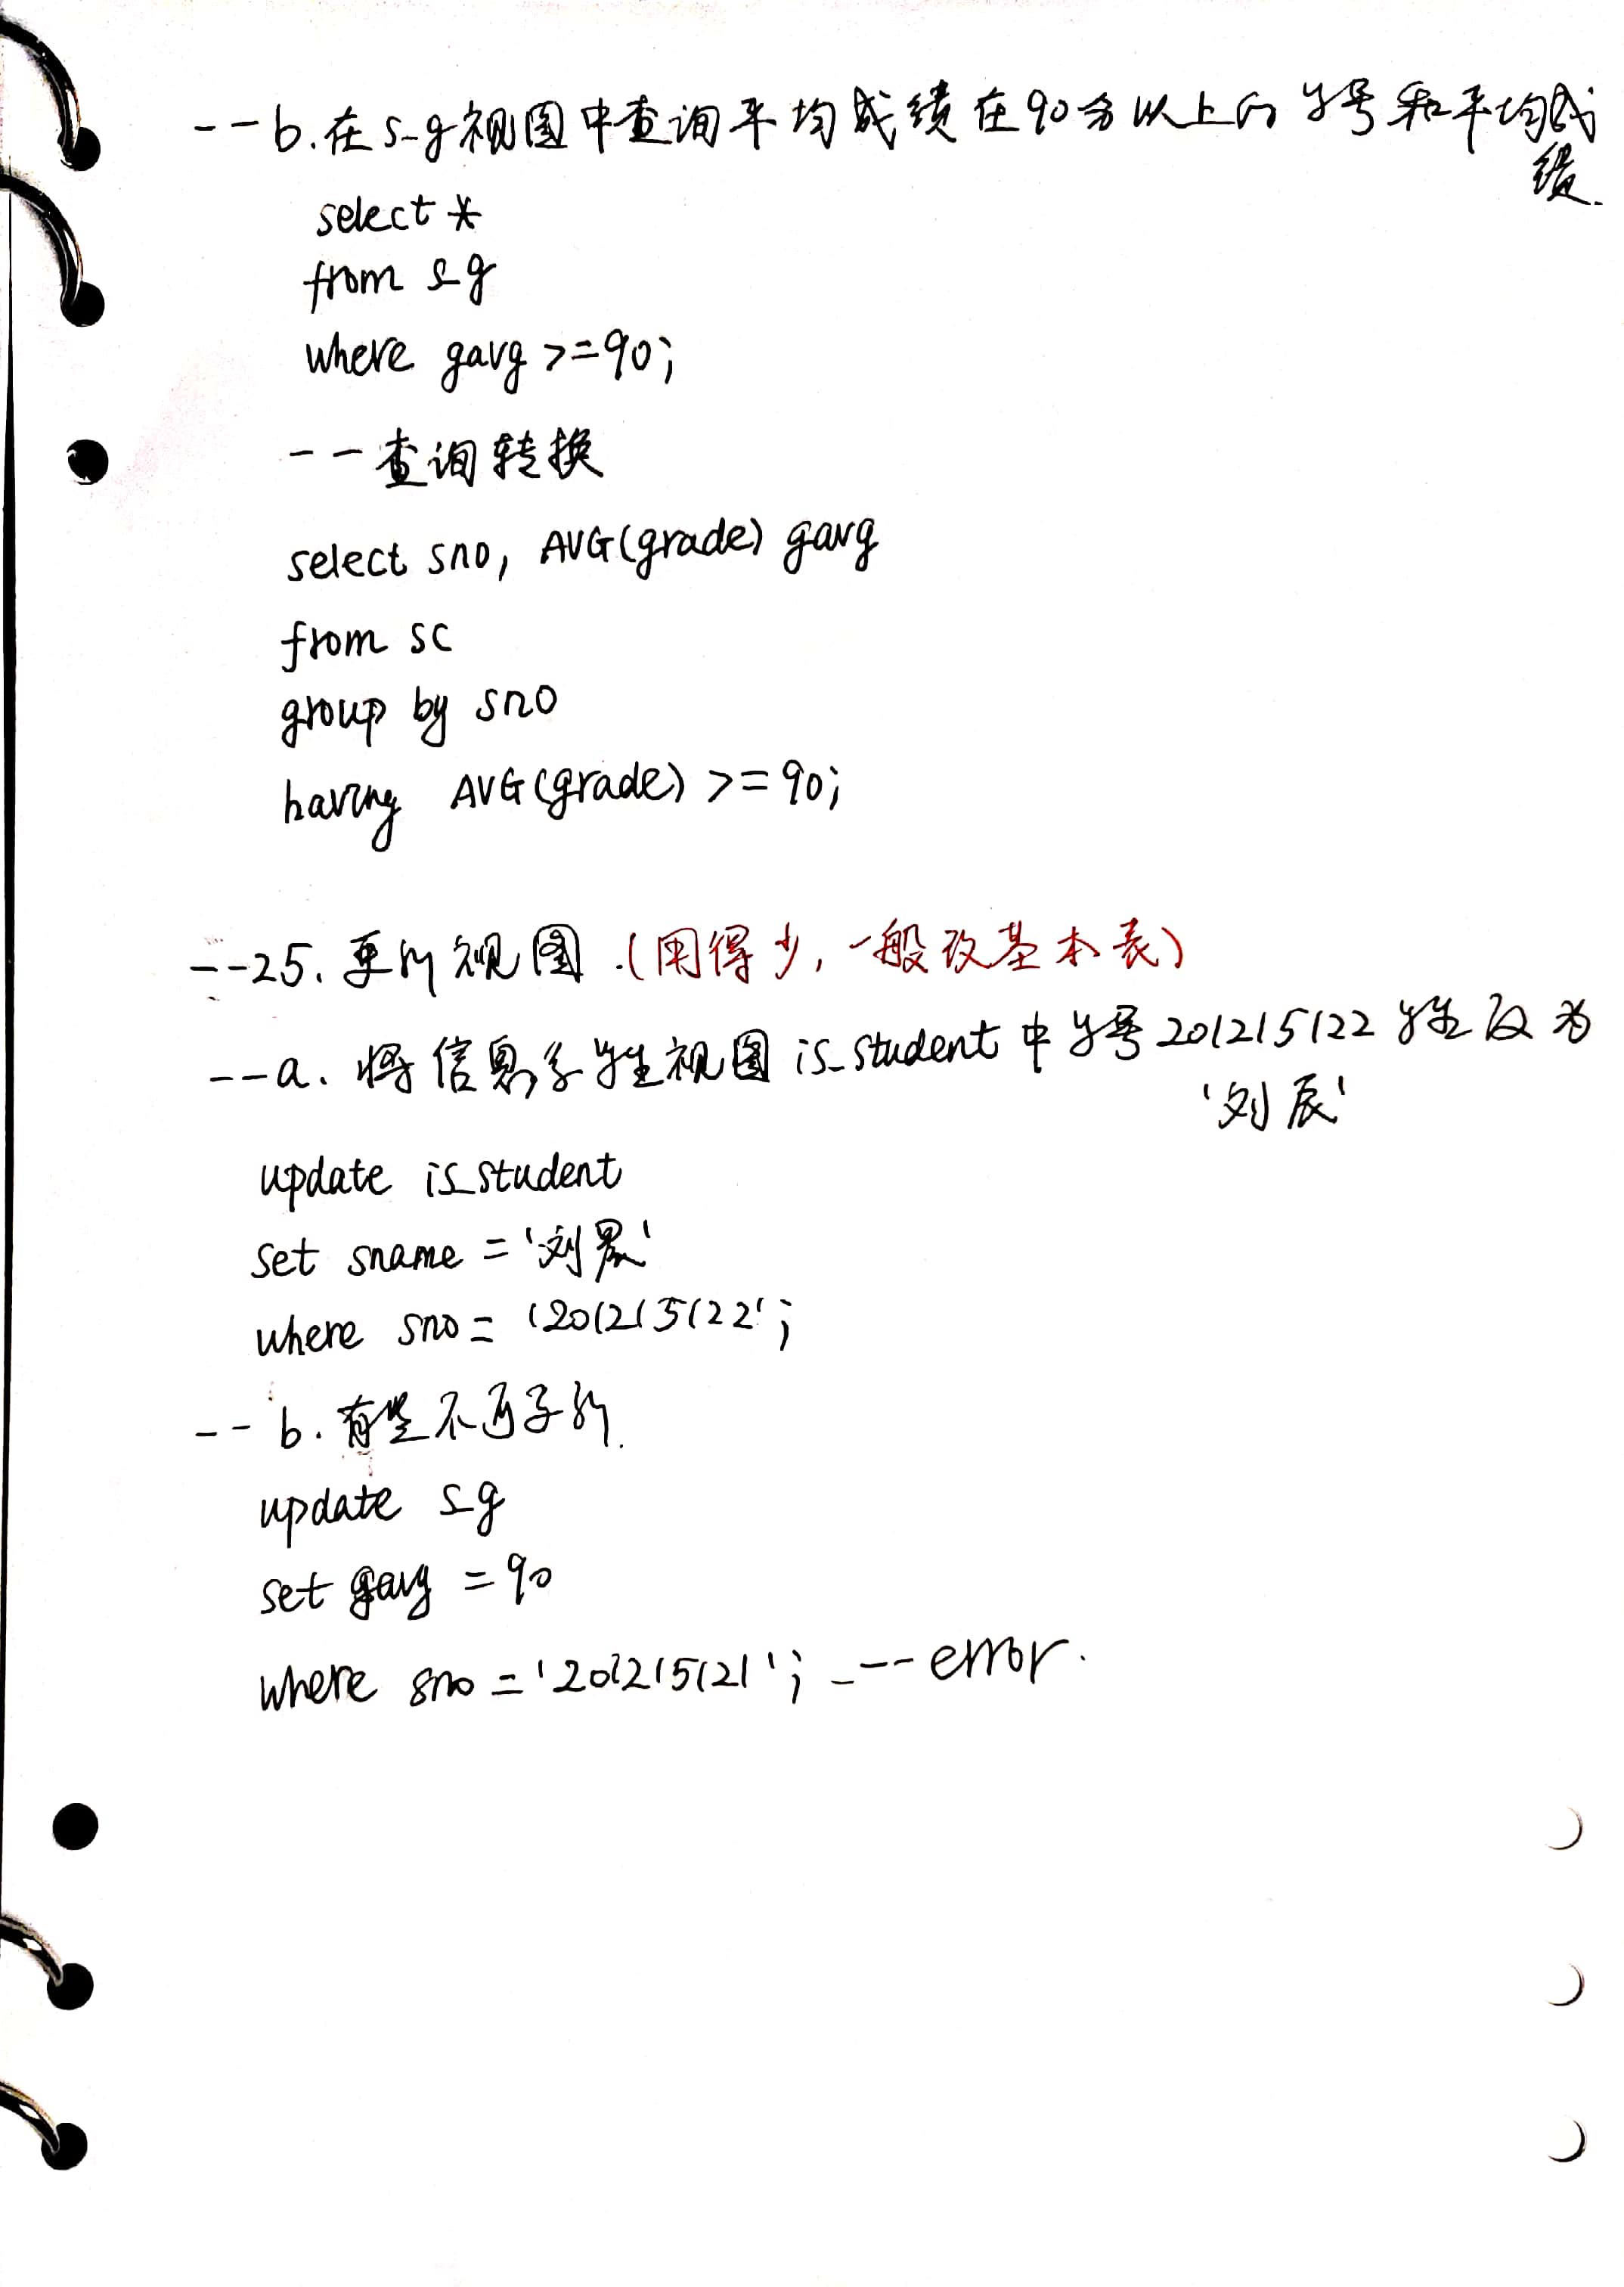 --b.在s_g视图中查询平均成绩在90分以上的学号和平均成
绩.
select *
from s_g
where gavg >=90;
--查询转换
select sno, AVG(grade) gavg
from sc
group by sno
having AVG(grade) >=90;
--25.更新视图.(用得少,一般改基本表)
--a.将信息系学生视图is_student中学号201215122学生改为
'刘辰'
update is_student
set sname ='刘晨'
where sno= '201215122';
--b.有些不可
update s_g
set gavg =90
where sno ='201215121'; --error.